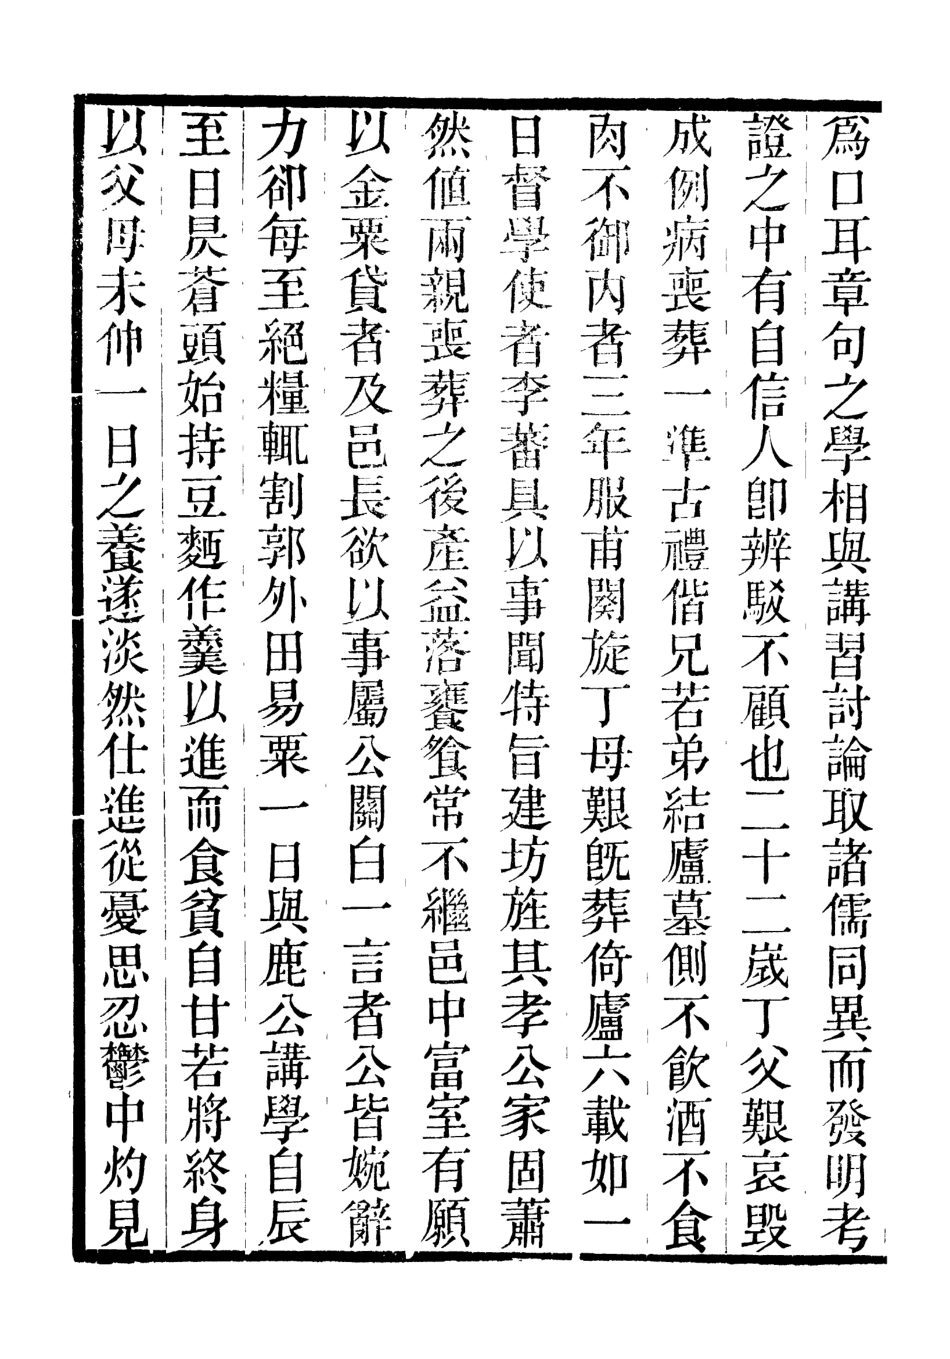 爲口耳章句之學相與講習討論取諸儒同異而發明考
證之中有自信人卽辨駁不顧也二十二歲丁父艱哀毀
成例病喪葬一準古禮偕兄若弟結廬墓側不飮酒不食
肉不御內者三年服甫闋旋丁母艱旣葬倚廬六載如一
日督學使者李蕃具以事聞特旨建坊旌其孝公家固蕭
然値兩親喪葬之後產益落饔飧常不繼邑中富室有願
以金粟貸者及邑長欲以事屬公關白一言者公皆婉辭
力卻每至絕糧輒割郭外田易粟一日與鹿公講學自辰
至日昃蒼頭始持豆麪作羹以進而食貧自甘若將終身
以父母未伸一日之養遂淡然仕進從憂思忍鬱中灼見